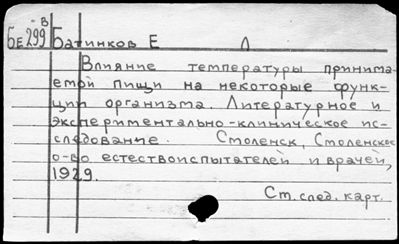 -В
Бе299 Батинков Е Л
Влияние температуры принима-
емой пищи на некоторые функ-
ции организма. Литературное и
экспериментально-клиническое ис-
следование. Смоленск, Смоленское
о-во естествоиспытателей и врачей,
1929.
Ст. след. карт.